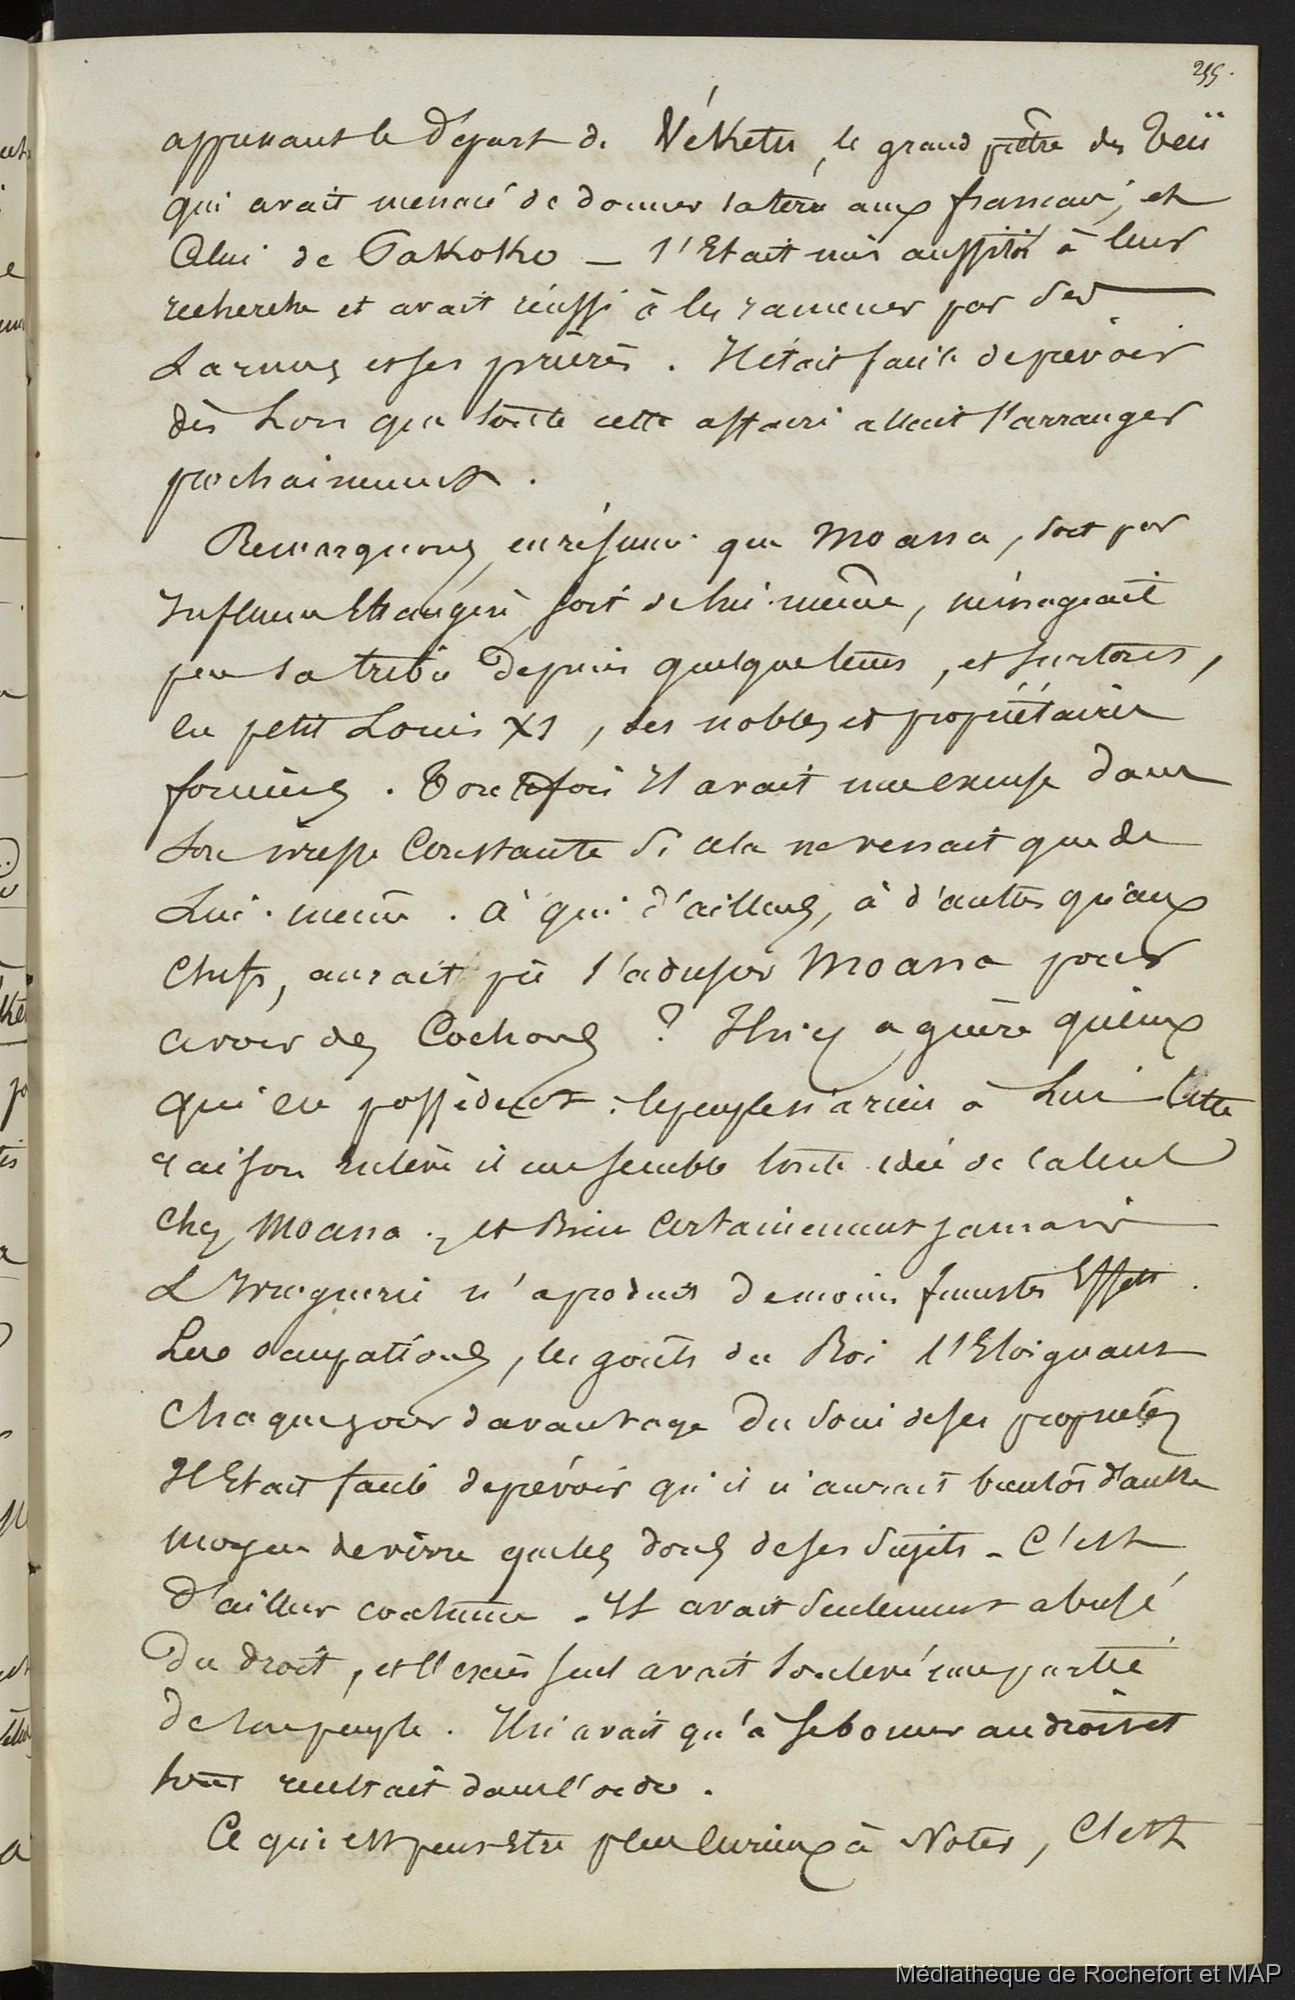 255.
apprenant le départ de Vékétu, le grand prêtre des Teïi
qui avait menacé de donner la terre aux français, et
Celui de Pakoko — s'Etait mis aussitôt à leur
recherche et avait réussi à les ramener par Ses
Larmes et ses prières. Il était facile de prévoir
dès Lors que toute cette affaire allait s'arranger
prochainement.
Remarquons, en résumé que Moana, soit par
Influence Etrangère, soit de lui-même, ménageait
peu sa tribu depuis quelque tems, et surtout,
en petit Louis XI, les nobles et propriétaires
fonciers. Toutefois Il avait une excuse dans
Son ivresse Constante Si cela ne venait que de
Lui-même. à qui d'ailleurs, à d'autres qu'aux
Chefs, aurait pû s'adresser Moana pour
avoir des Cochons ? Il n'y a guère qu'eux
qui en possèdent : le peuple n'a rien à Lui. Cette
raison enlève il me semble toute idée de calcul
chez Moana. et Bien Certainement jamais
L'Ivrognerie n'a produit de moins funestes Effets.
Les occupations, les goûts du Roi l'Eloignant
Chaque jour davantage Du Soin de ses propriétés
Il Etait facile de prévoir qu'il n'aurait bientôt d'autre
moyen de vivre que les dons de ses Sujets - C'est
d'ailleurs coutume - Il avait Seulement abusé
Du droit, et l'excès seul avait soulevé une partie
De son peuple. Il n'avait qu'à se borner au droit et
tout rentrait dans l'ordre.
Ce qui est peut-Etre plus Curieux à Noter, C'est
Médiathèque de Rochefort et MAP